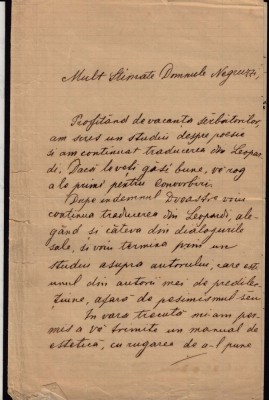 Mult Stimate Domnule Negruzzi,
Profitând de vacanta sĕrbătorilor,
am scris un studiu despre poesie
si am continuat traducerea din Leopar-
di. Dacă le veti găsi bune, vĕ rog
a le primi pentru Convorbiri.
Dupe indemnul Dvoastre voiu
continua traducerea din Leopardi, ale-
gând si câtiva din dialogurile
sale, si voiu termina prin un
studiu asupra autorului, care est
unul din autorii mei de predilec-
tiune, afară de pesimismul sĕu.
In vara trecută mi-am per-
mes a vĕ trimite un manual de
estetică, cu rugarea de a-l pune